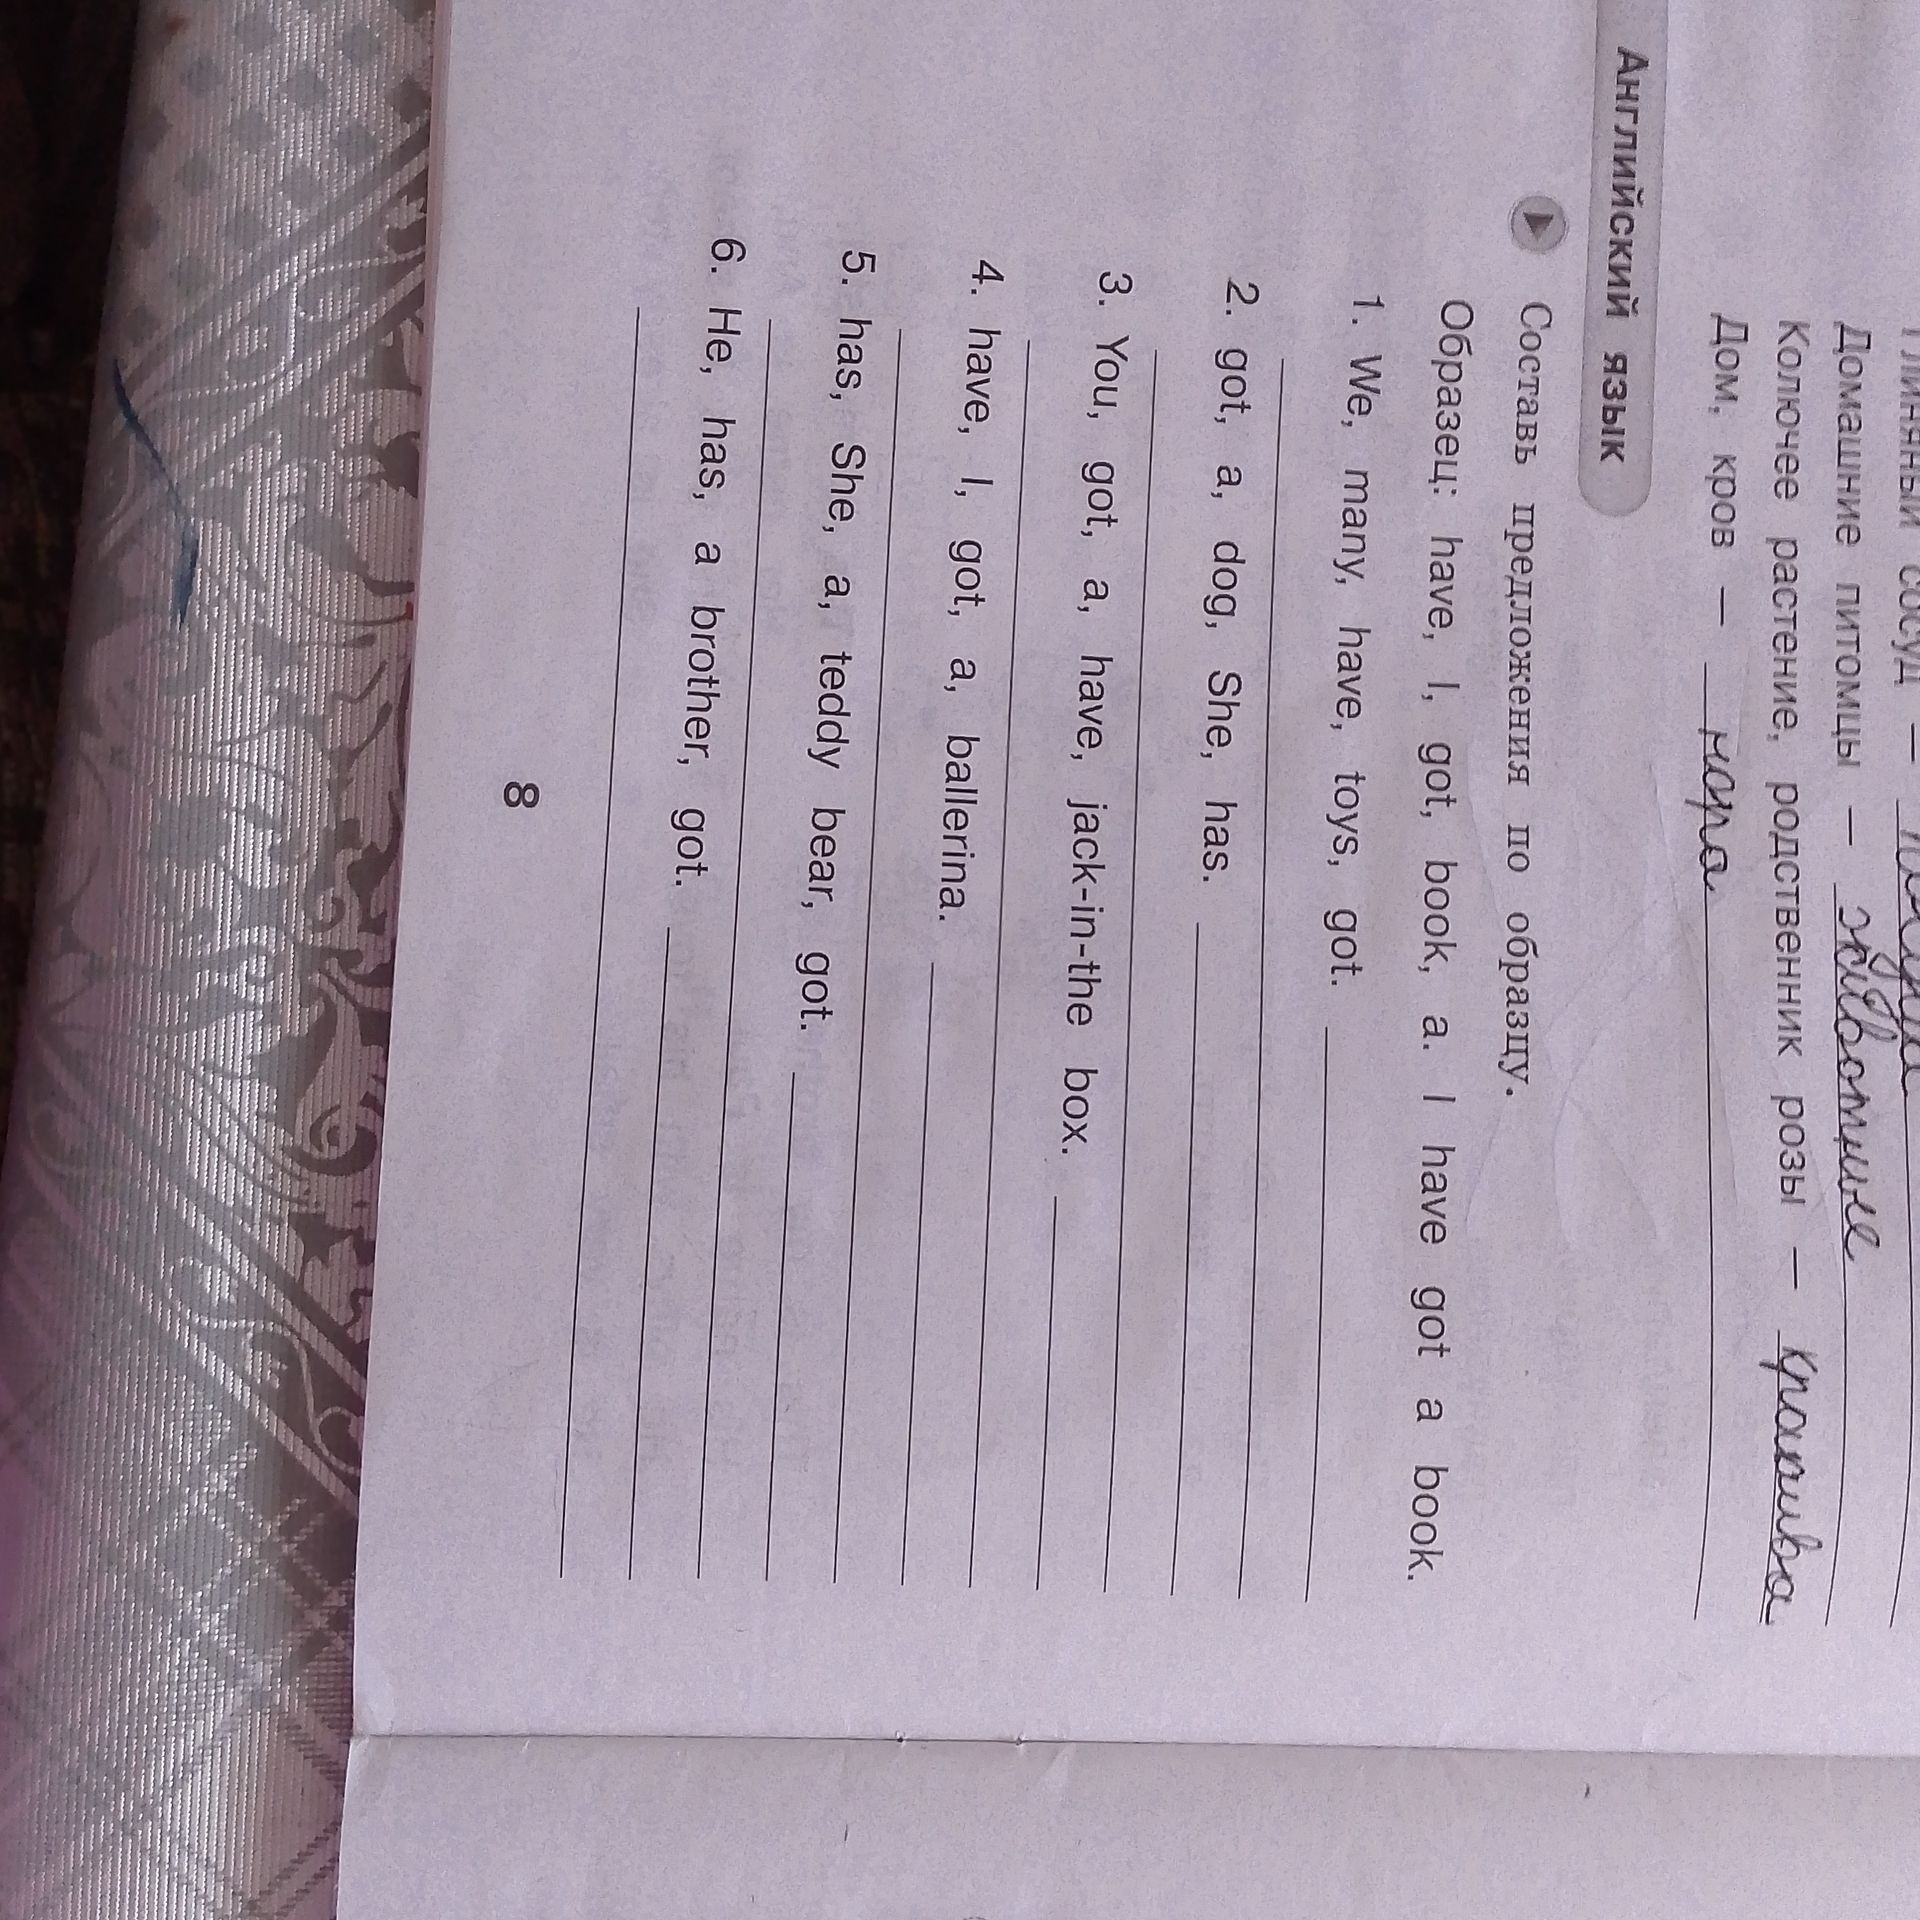 Глиняный сосуд –
Домашние питомцы – животные
Колючее растение, родственник розы – крапива
Дом, кров – нора
Английский язык
Составь предложения по образцу.
Образец: have, I, got, book, a. I have got a book.
1. We, many, have, toys, got.
2. got, a, dog, She, has.
3. You, got, a, have, jack-in-the box.
4. have, I, got, a, ballerina.
5. has, She, a, teddy bear, got.
6. He, has, a brother, got.
8